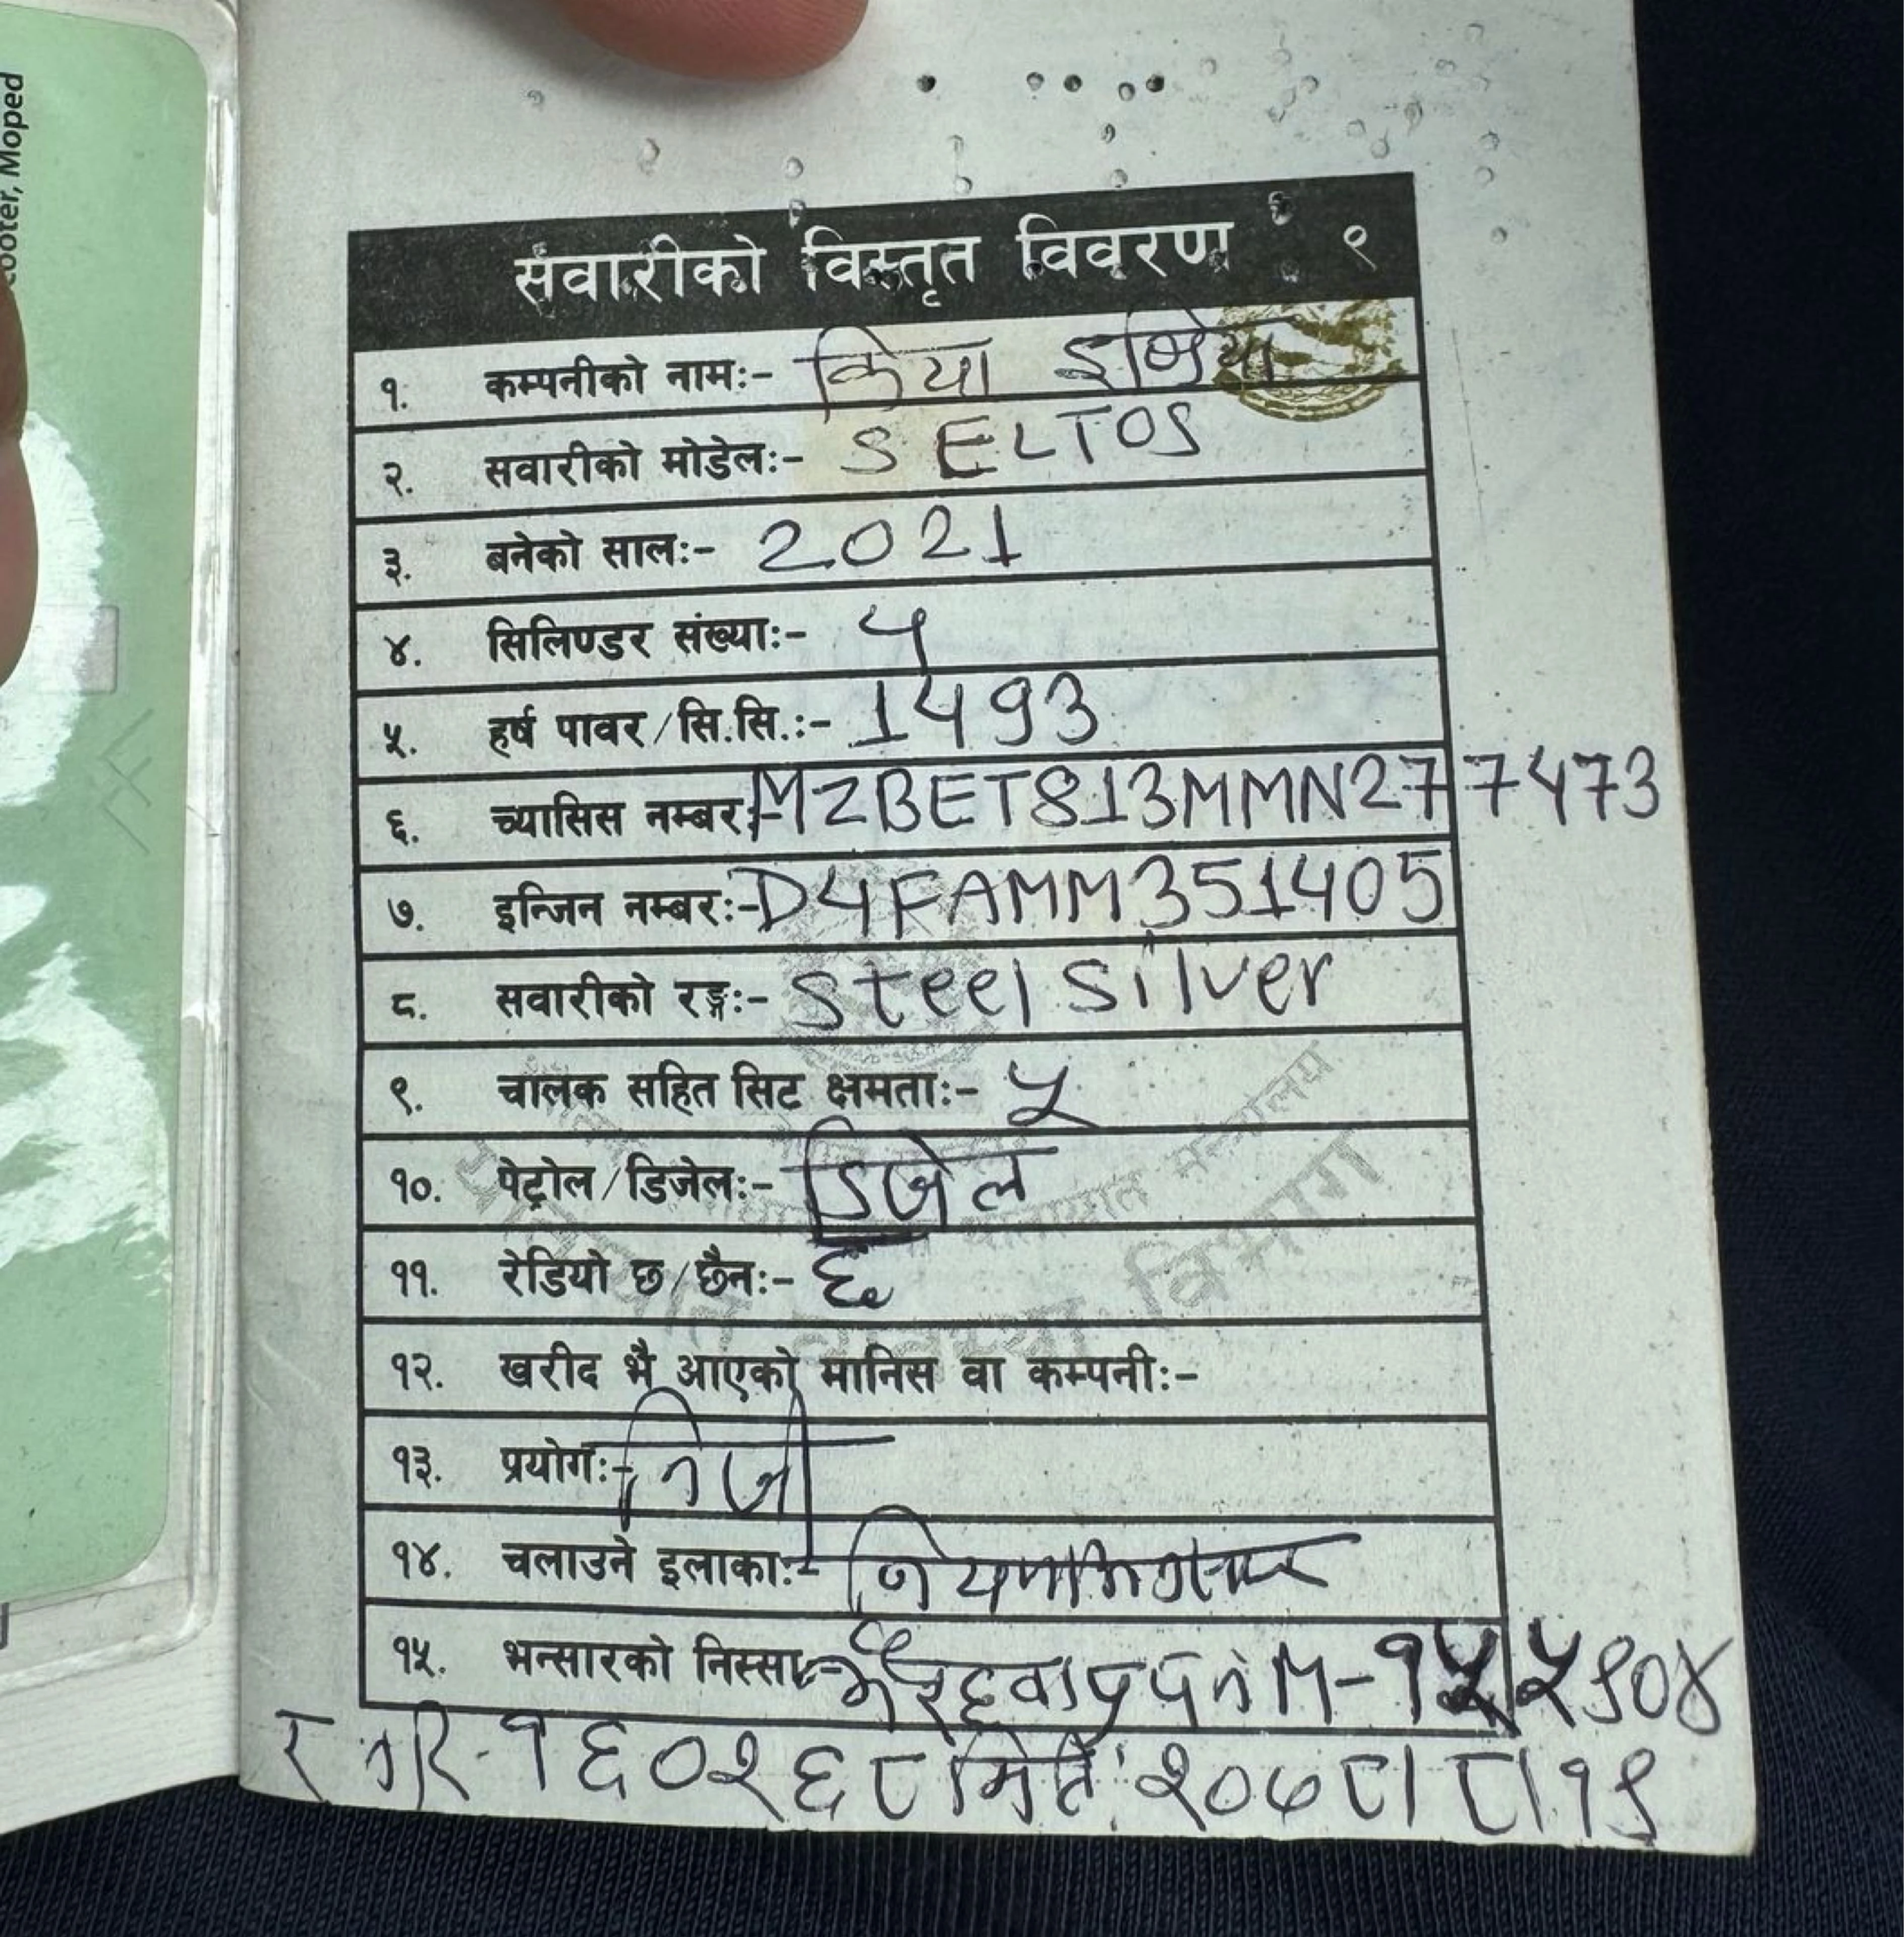 ooter, Moped
सवारीको विस्तृत विवरण ९
१. कम्पनीको नाम:- किया इण्डिया
२. सवारीको मोडेल:- SELTOS
३. बनेको साल:- 2021
४. सिलिण्डर संख्या:- 4
५. हर्ष पावर/सि.सि.:- 1493
६. च्यासिस नम्बर:- MZBET813MMN277473
७. इन्जिन नम्बर:- D4FAMM351405
८. सवारीको रङ्ग:- Steel Silver
९. चालक सहित सिट क्षमता:- ५
१०. पेट्रोल/डिजेल:- डिजेल
११. रेडियो छ/छैन:- छ
१२. खरीद भै आएको मानिस वा कम्पनी:-
१३. प्रयोग:- निजी
१४. चलाउने इलाका:- नियमानुसार
१५. भन्सारको निस्सा:- M-१५५९०४
र १६०२६८ मिति २०७८।८।१९
यातायात व्यवस्था विभाग